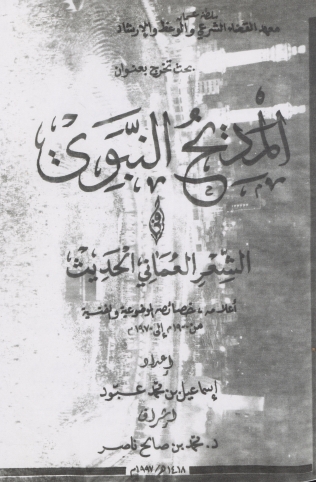 سلطنة عمان
معهد القضاء الشرعي والوعظ والإرشاد
بحث تخرج بعنوان
المديح النبوي
في
الشعر العماني الحديث
أعلامه، خصائصه الموضوعية والفنية
من ١٩٠٠م إلى ١٩٧٠م
إعداد
إسماعيل بن محمد عبود
إشراف
د. محمد بن صالح ناصر
١٤١٨هـ/١٩٩٧م